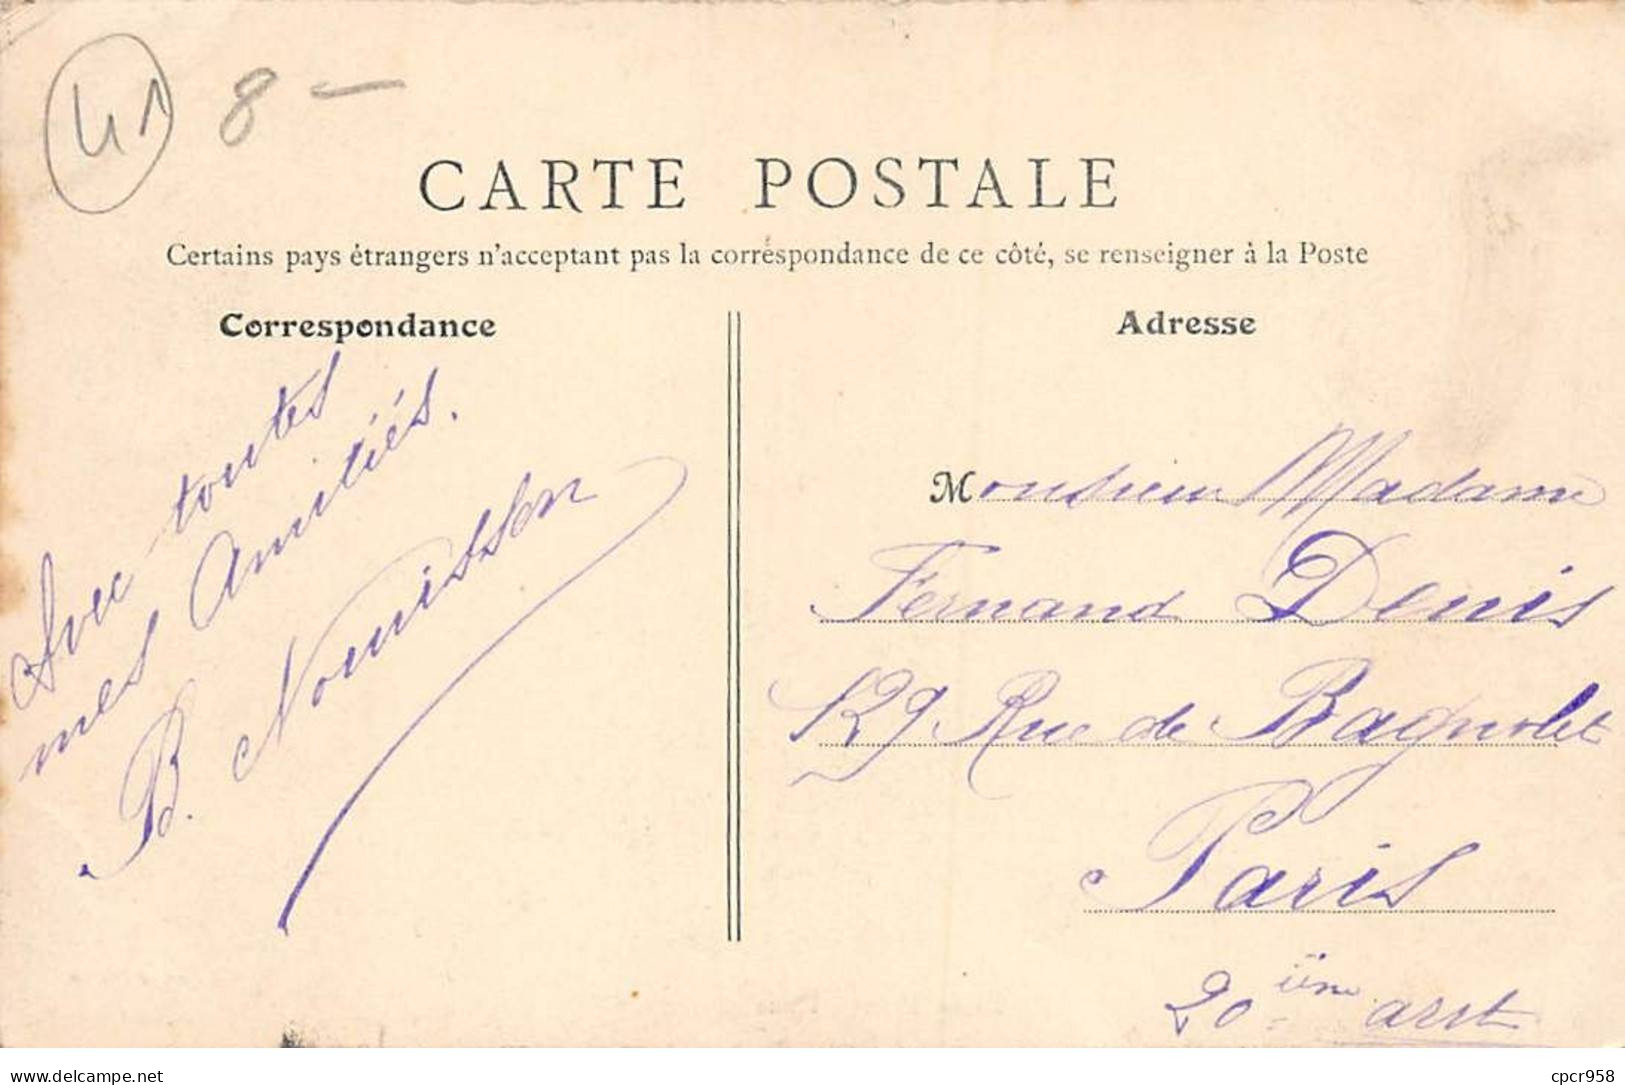 41 8 –
CARTE POSTALE
Certains pays étrangers n'acceptant pas la correspondance de ce côté, se renseigner à la Poste
Correspondance
Avec toutes
mes Amitiés.
B. Nouissen
Adresse
Monsieur Madame
Fernand Denis
129 Rue de Bagnolet
Paris
20 ième arst
www.delcampe.net
cpcr958